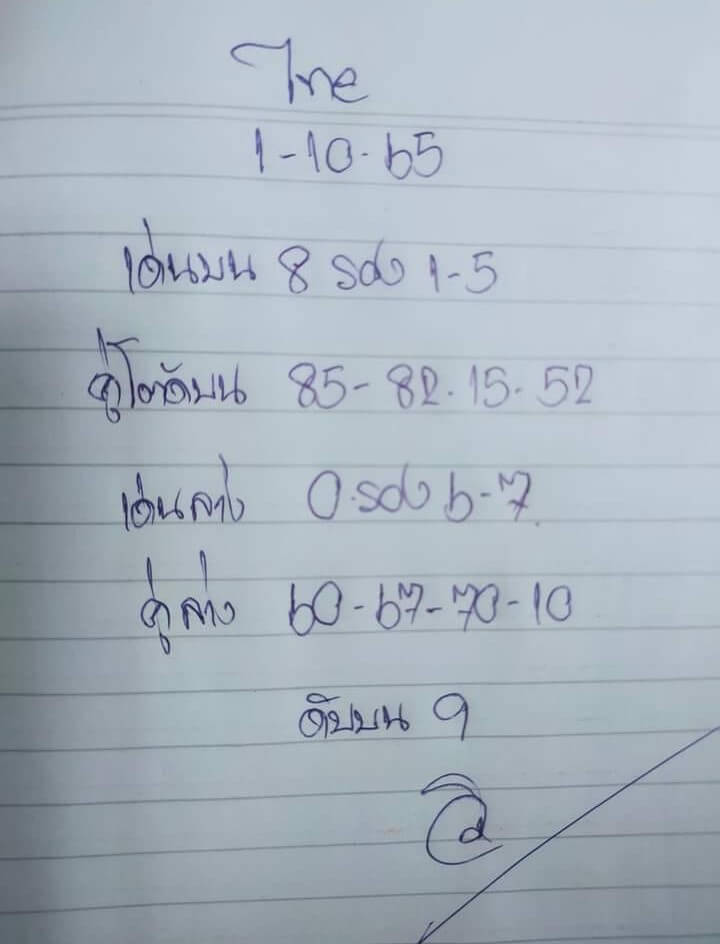 ไทย
1-10-65
เด่นบน 8 รอง 1-5
คู่โต๊ดบน 85-82.15.52
เด่นล่าง 0.รอง 6-7
คู่ล่าง 60-67-70-10
ดับบน 9